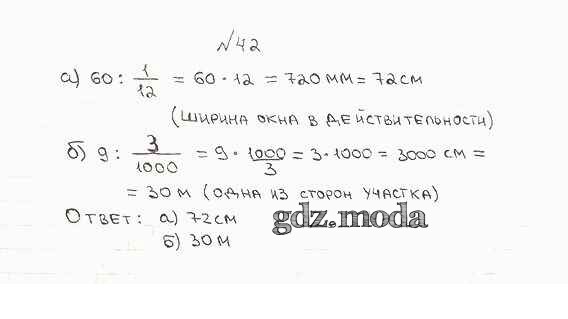 №42
а) 60 : 1/12 = 60 · 12 = 720 мм = 72 см
(ширина окна в действительности)
б) 9 : 3/1000 = 9 · 1000/3 = 3 · 1000 = 3000 см =
= 30 м (одна из сторон участка)
Ответ: а) 72 см
б) 30 м
gdz.moda